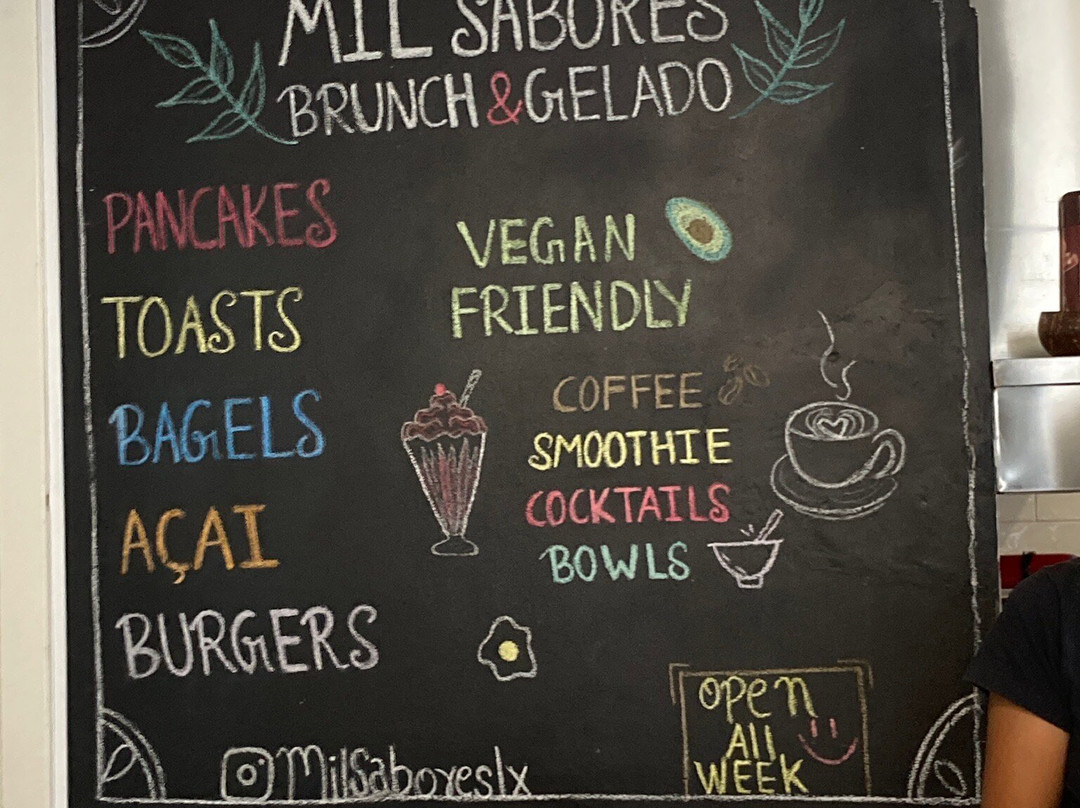 MIL SABORES
BRUNCH & GELADO
PANCAKES
TOASTS
BAGELS
AÇAI
BURGERS
VEGAN
FRIENDLY
COFFEE
SMOOTHIE
COCKTAILS
BOWLS
open
All
WEEK
Milsaboreslx